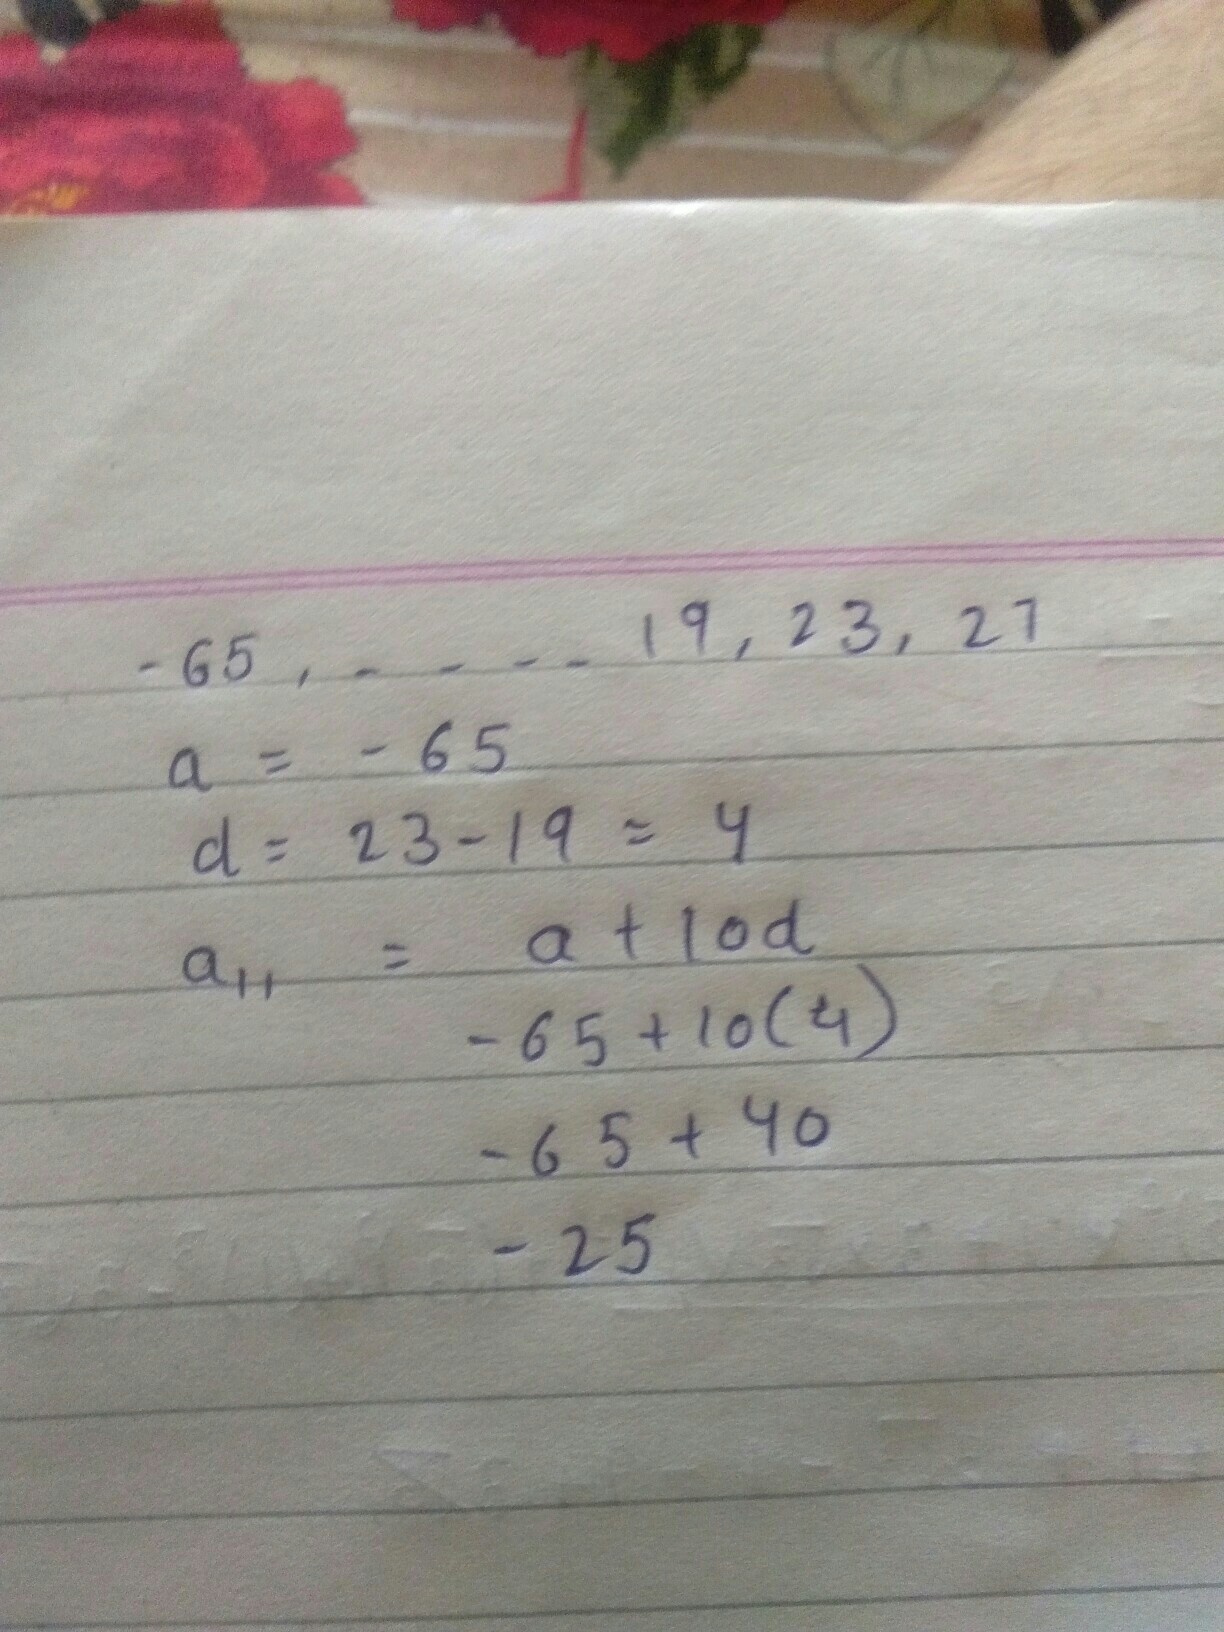 -65, - - - - 19, 23, 27
a = -65
d = 23-19 = 4
a11 = a + 10d
-65+10(4)
-65+40
-25